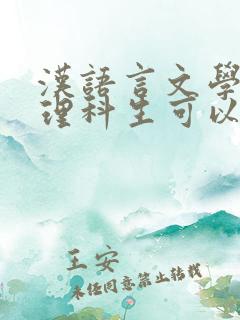 漢語言文學
理科生可以
王安
未经同意禁止转载